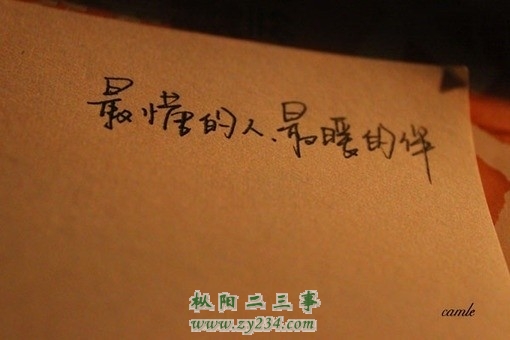 最懂的人、最暖的伴
camle
枞阳二三事
www.zy234.com